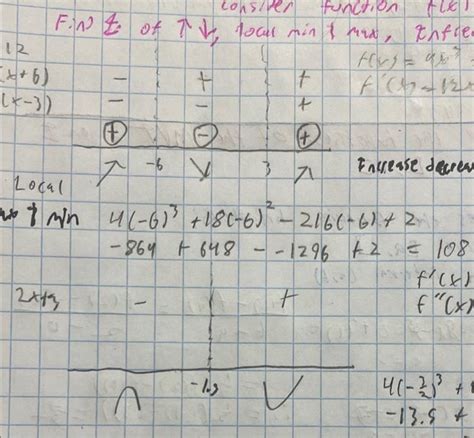 consider function f(x)
Find I of ↑ ↓, local min & max, Inflec
f(x) = 4x³
12
(x+6) − + +
f'(x) = 12x
(x-3) − − +
+ − +
↗ -6 ↘ 3 ↗ Increase decrea
Local
max & min 4(-6)³ +18(-6)² -216(-6) + 2
-864 + 648 - -1296 + 2 = 108
f'(x)
2x+3 − + f''(x)
-1.5
4(-3/2)³ +
-13.5 +